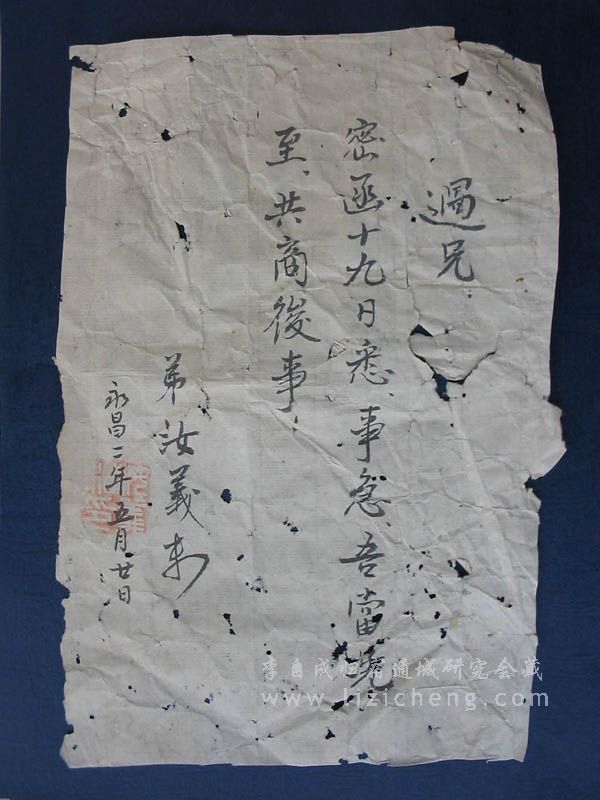 過兄
密函十九日悉、事急、吾當
至、共商後事
弟汝義
永昌二年五月廿日
李自成归宿通城研究会藏
www.lizicheng.com